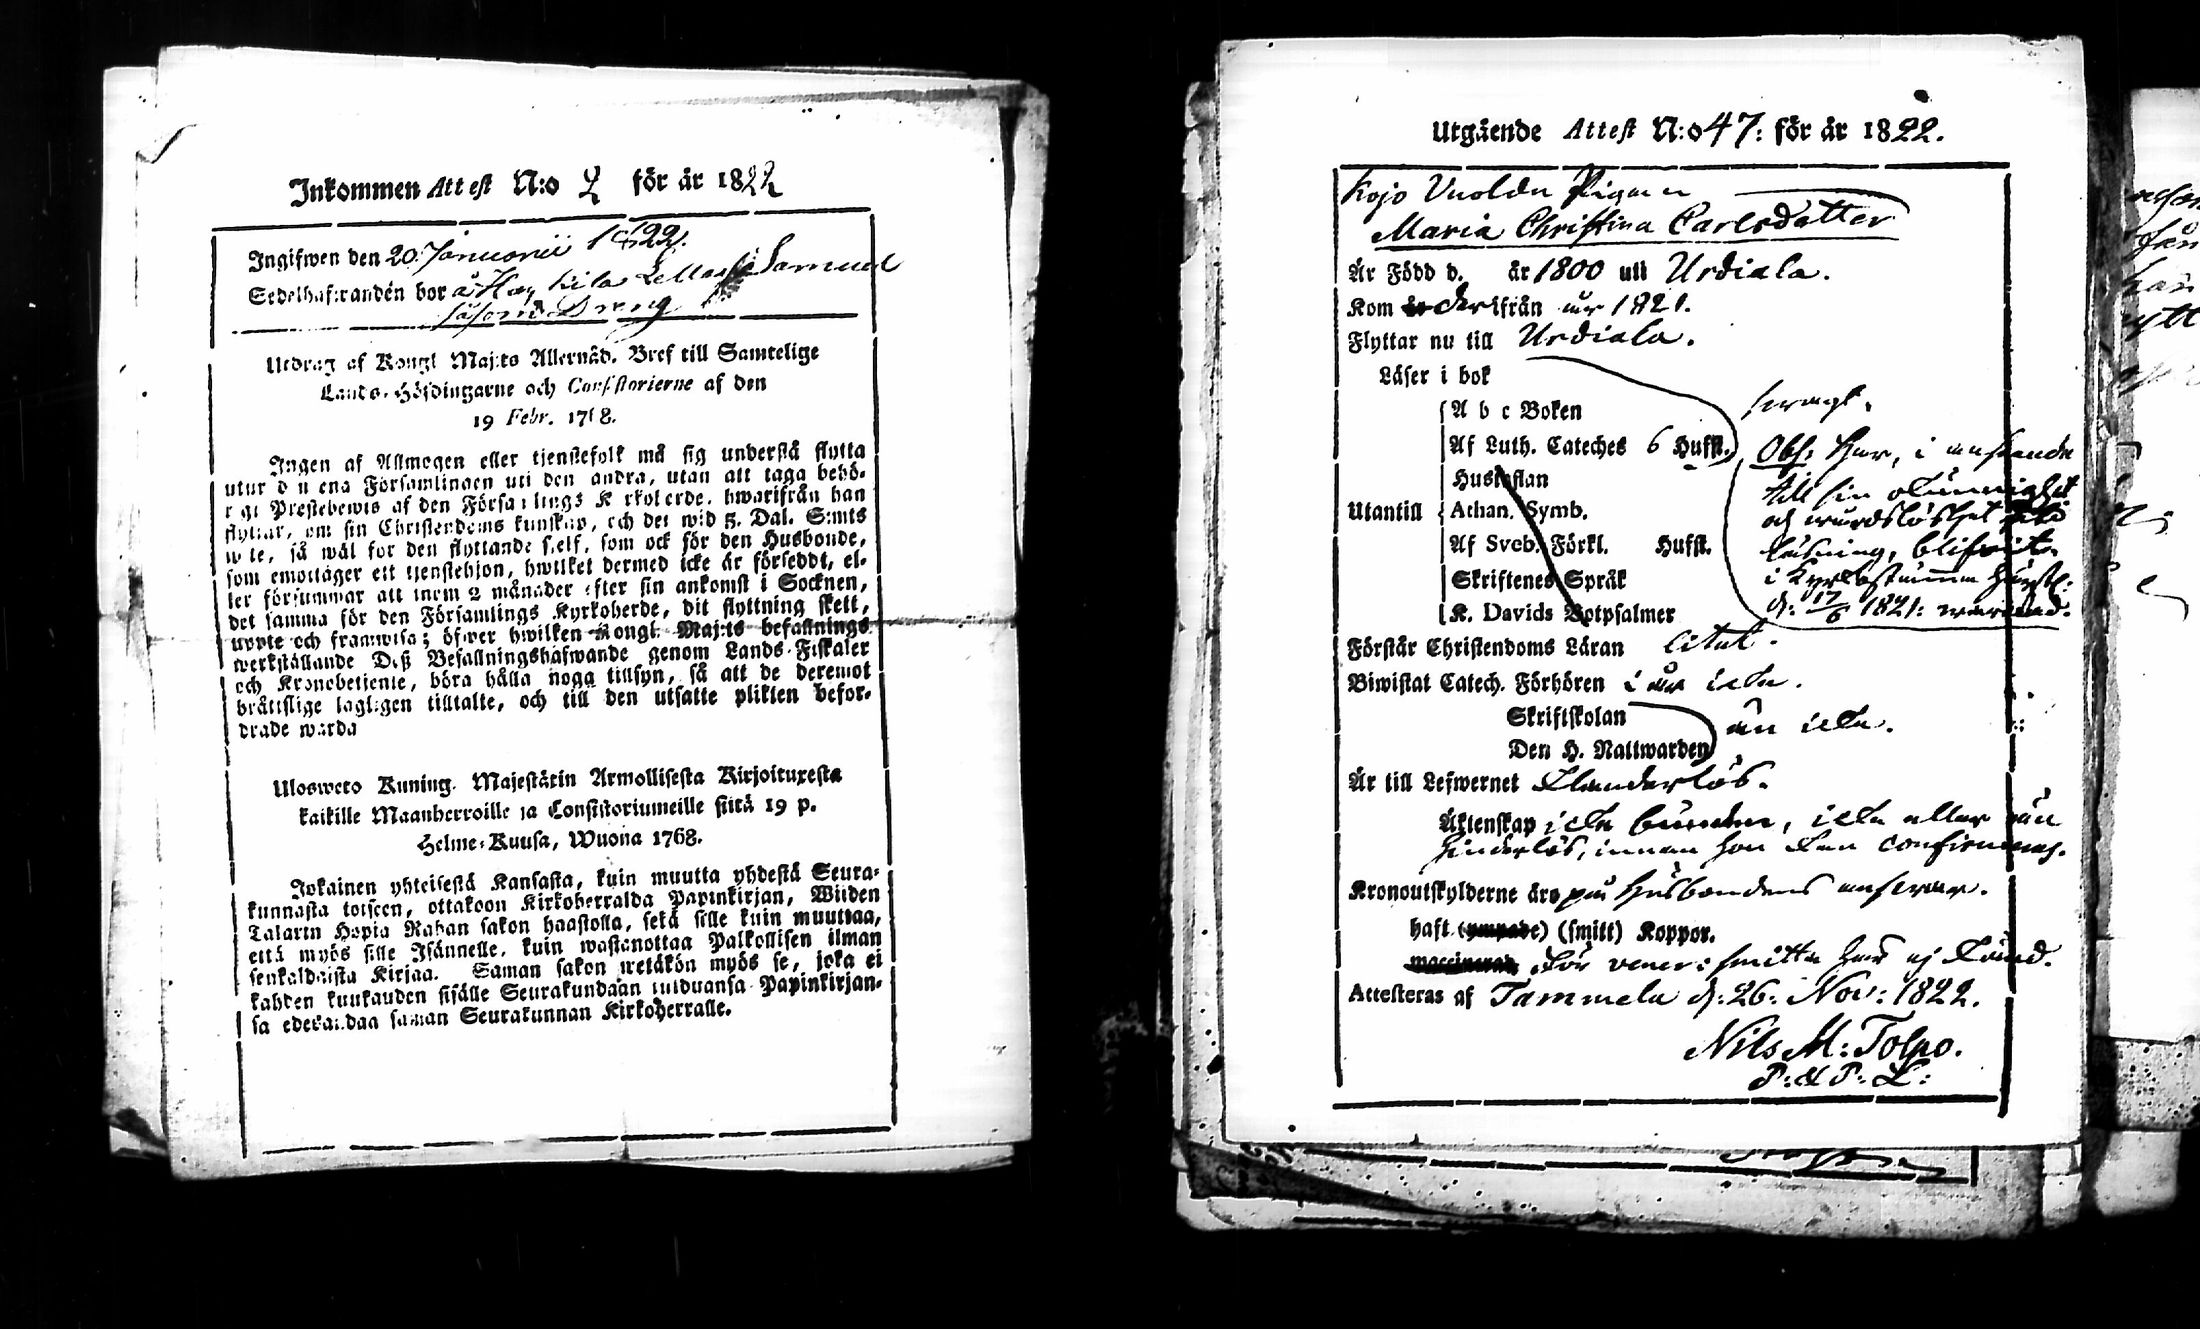 Inkommen Attest N:o 2 för år 1822
Ingifwen den 20 Januarii 1822.
Sedelhafwanden bor å Samuel
såsom Dreng
Utdrag af Kongl Maj:ts Allernåd. Bref till Samtelige
Lands-Höfdingarne och Consistorierne af den
19 Febr. 1768.
Ingen af Allmogen eller tjenstefolk må sig understå flytta
utur den ena Församlingen uti den andra, utan att taga behö-
rigt Prestebewis af den Församlings Kyrkoherde, hwarifrån han
flyttar, om sin Christendoms kunskap, och det wid 5. Dal. S:mts
wite, så wäl för den flyttande sjelf, som ock för den Husbonde,
som emottager ett tjenstehjon, hwilket dermed icke är försedt, el-
ler försummar att inom 2 månader efter sin ankomst i Socknen,
det samma för den Församlings Kyrkoherde, dit flyttning skett,
uppte och framwisa; öfwer hwilken Kongl. Maj:ts befallnings
werkställande Deß Befallningshafwande genom Lands-Fiskaler
och Kronobetjente, böra hålla noga tillsyn, så att de deremot
bråttslige lagligen tilltalte, och till den utsatte plikten befor-
drade warda
Ulosweto Kuning. Majestätin Armollisesta Kirjoituxesta
kaikille Maanherroille ja Consistoriumeille siitä 19 p.
Helme-Kuusa, Wuona 1768.
Jokainen yhteisestä Kansasta, kuin muutta yhdestä Seura-
kunnasta toiseen, ottakoon Kirkoherralda Papinkirjan, Wiiden
Talarin Hopia Rahan sakon haastolla, sekä sille kuin muuttaa,
että myös sille Isännelle, kuin wastanottaa Palkollisen ilman
senkaldaista Kirjaa. Saman sakon wetäkön myös se, joka ei
kahden kuukauden sisälle Seurakundaan tulduansa Papinkirjan-
sa edeskandaa saman Seurakunnan Kirkoherralle.
Utgående Attest N:o 47: för år 1822.
Kojo Uuoldu Pigan
Maria Christina Carlsdotter
Är Född d. år 1800 uti Urdiala.
Kom derifrån år 1821.
Flyttar nu till Urdiala.
Läser i bok
A b c Boken
svagt.
Af Luth. Cateches 6 Hufst.
Obs: Har, i anseende
Hustaflan
till sin okunnighet
Utantill Athan. Symb.
och vårdslöshet
Af Sveb. Förkl. Hufst.
läsning, blifvit
Skriftenes Språk
i Kyrkostämma
K. Davids Botpsalmer
d: 17/6 1821: warnad.
Förstår Christendoms Läran litet.
Biwistat Catech. Förhören i år icke.
Skriftskolan
än icke.
Den H. Nattwarden
Är till Lefwernet Klanderlös.
Äktenskap icke bunden, icke eller än
hinderlös, innan hon kan confirmeras.
Kronoutskylderne äro på Husbondens ansvar.
haft (ympade) (smitt) Koppor.
för vener: smitta här ej känd.
Attesteras af Tammela d: 26: Nov: 1822.
Nils M: Tolpo.
P: & P: L: